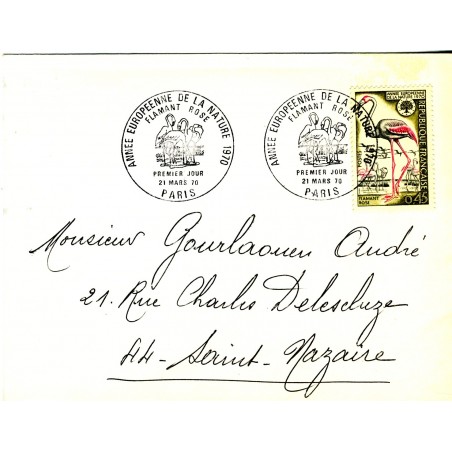 ANNÉE EUROPÉENNE DE LA NATURE 1970
FLAMANT ROSE
PREMIER JOUR
21 MARS 70
PARIS
ANNÉE EUROPÉENNE DE LA NATURE 1970
FLAMANT ROSE
PREMIER JOUR
21 MARS 70
PARIS
ANNEE EUROPEENNE
DE LA NATURE 1970
REPUBLIQUE FRANÇAISE
FLAMANT
ROSE
0,45
Monsieur Gourlaouen André
21. Rue Charles Delescluze
44 - Saint-Nazaire